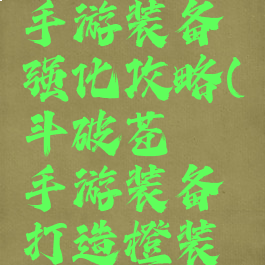 手游装备
强化攻略(
斗破苍
手游装备
打造橙装